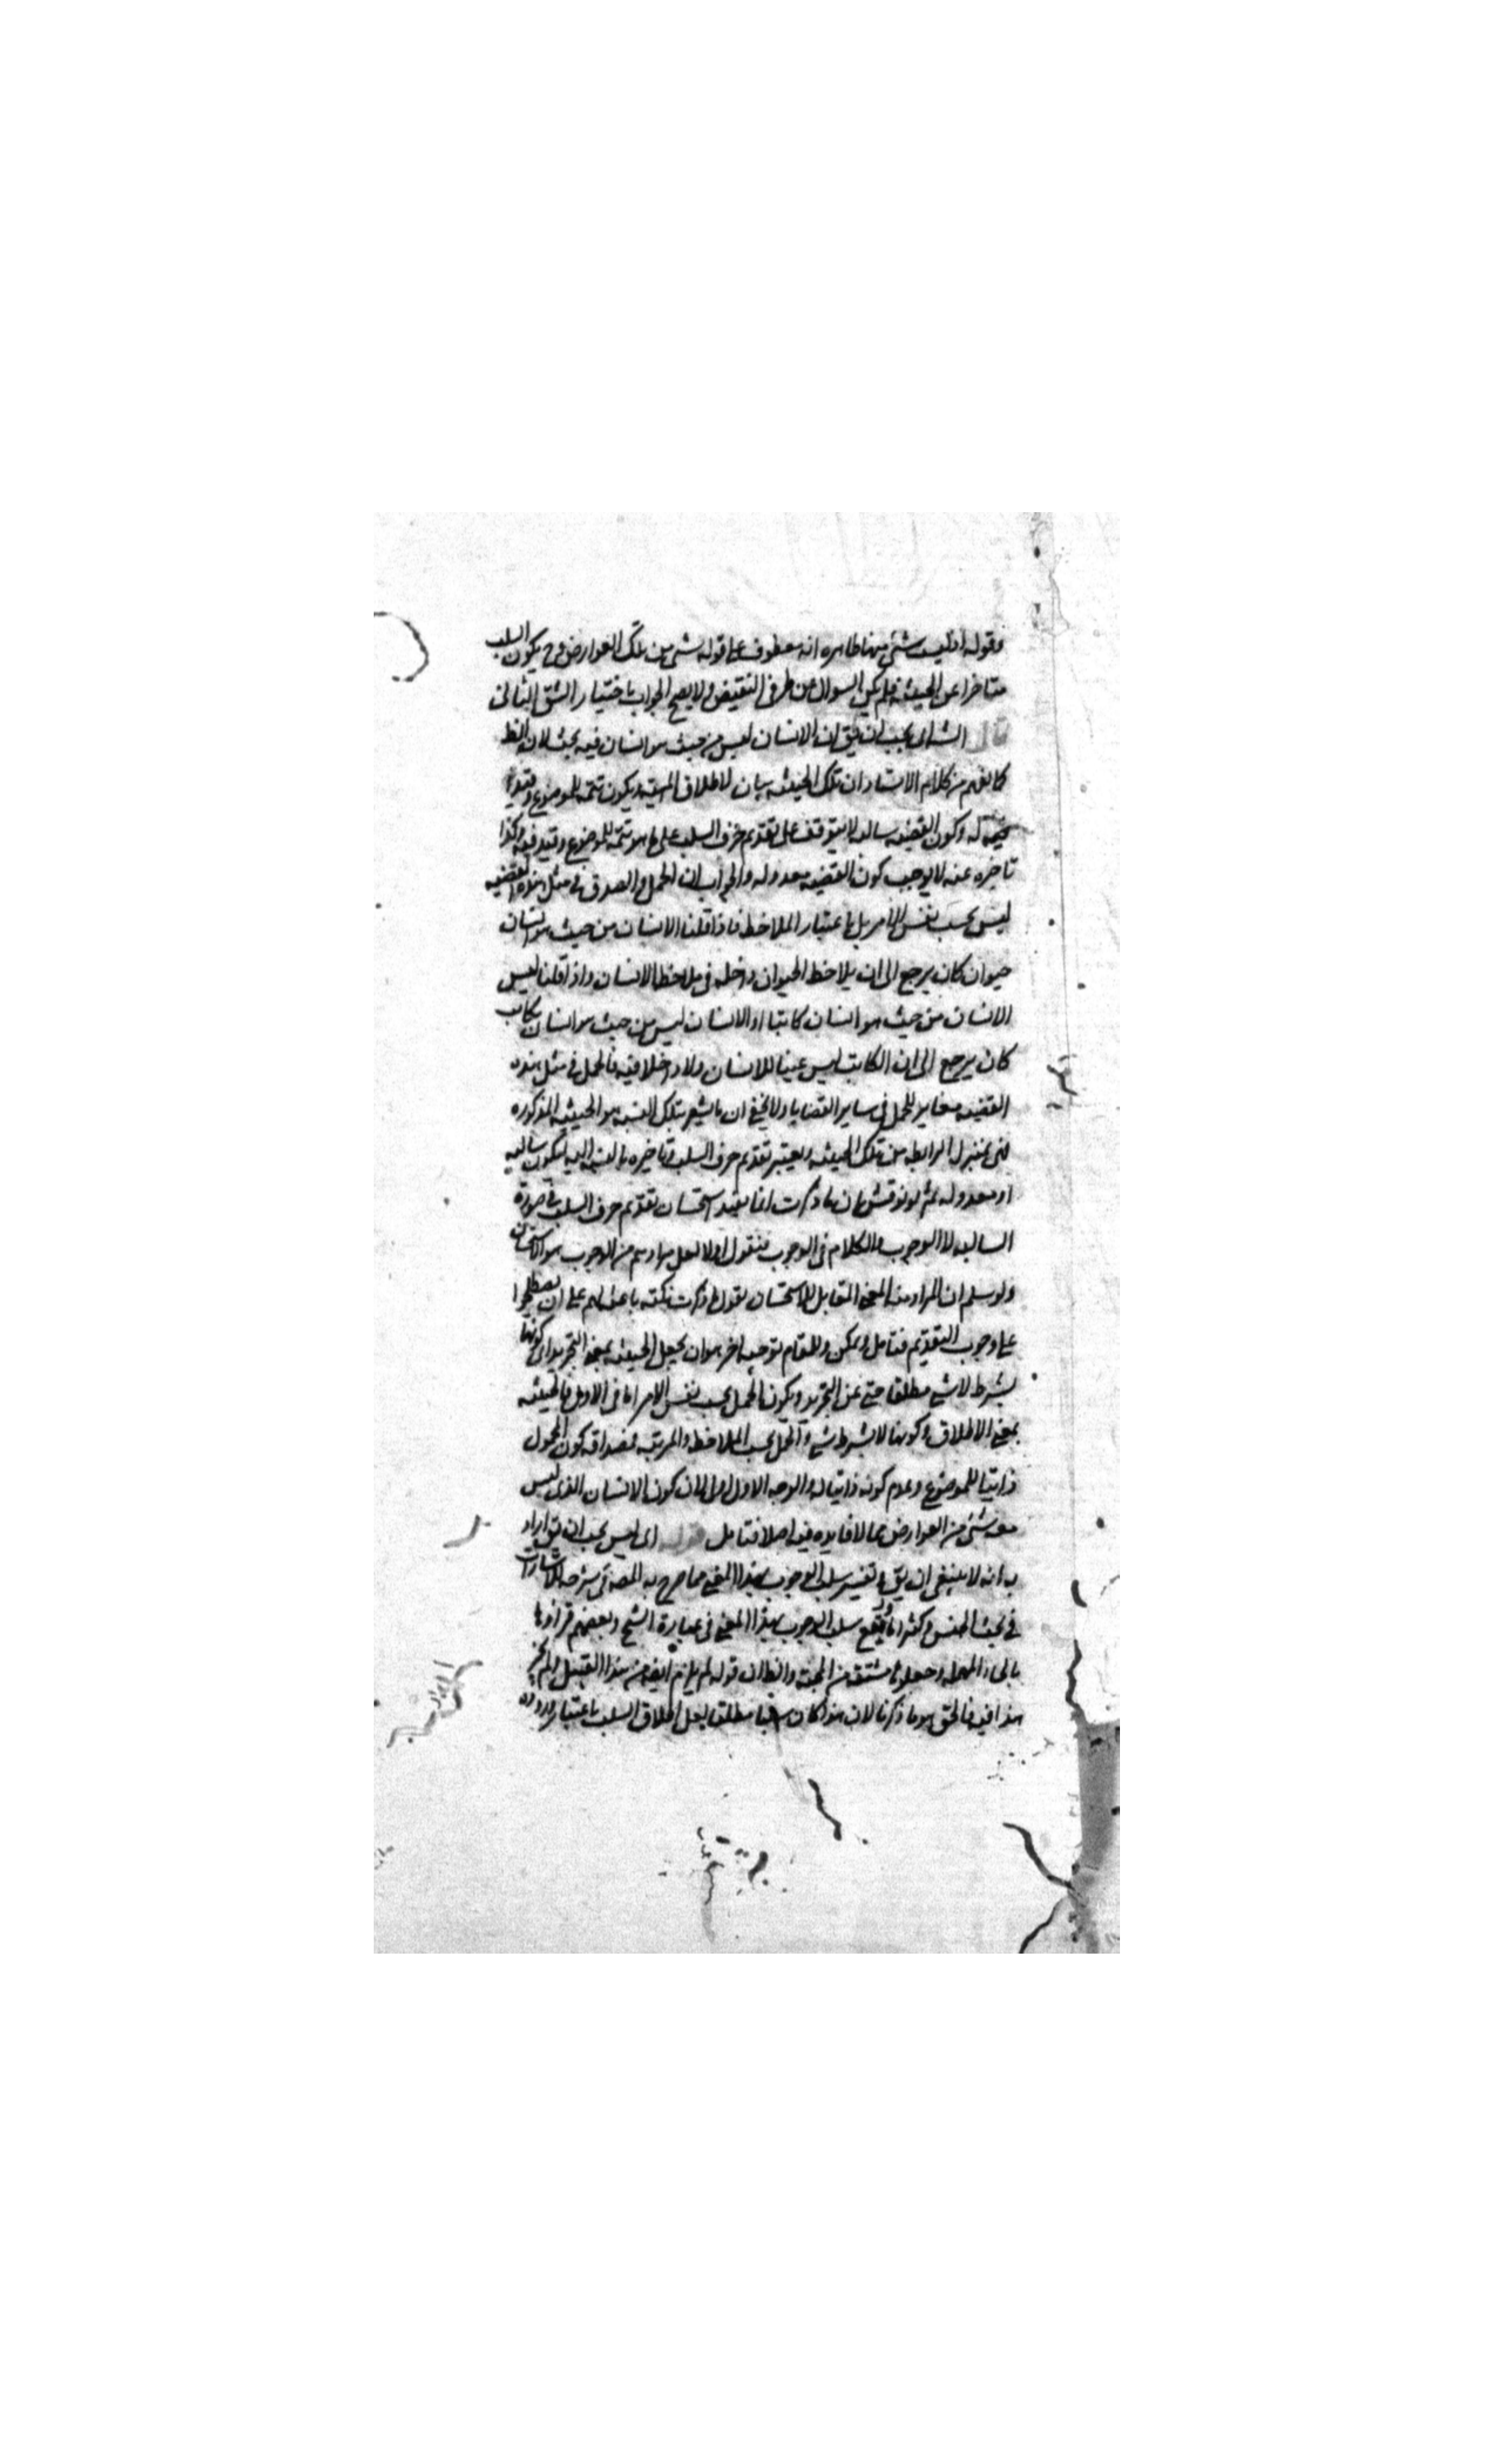 وقوله او ليست شئ منها ظاهره انه معطوف على قوله شئ من تلك العوارض وح يكون السلب
متاخرا عن الحيثيه فلم يكن السوال عن طرفى النقيض ولا يصح الجواب باختيار الشق الثانى
قال الش اى يجب ان يق ان الانسان ليس من حيث هو انسان فيه بحث لان الظ
كما يفهم من كلام الاستاد ان تلك الحيثيه بيان لاطلاق المهيه ويكون تتمه للموضوع وقيدا
له وكون القضيه سالبه لا يتوقف على تقديم حرف السلب على ما هو تتمه للموضوع وقيد فيه وكذا
تاخيره عنه لا يوجب كون القضيه معدوله والجواب ان الحمل والصدق فى مثل هذه القضيه
ليس بحسب نفس الامر بل باعتبار الملاحظه فاذا قلنا الانسان من حيث هو انسان
حيوان كان يرجع الى ان يلاحظ الحيوان داخله فى ملاحظه الانسان واذا قلنا ليس
الانسان من حيث هو انسان كاتبا او الانسان ليس من حيث هو انسان بكاتب
كان يرجع الى ان الكاتب ليس عينا للانسان ولا داخلا فيه فالحمل فى مثل هذه
القضيه مغاير للحمل فى ساير القضايا ولا يخفى ان ما يشعر بتلك النسبه هو الحيثيه المذكوره
فهى بمنزله الرابطه من تلك الحيثيه ويعتبر تقديم حرف السلب وتاخيره بالنسبه اليه ليكون سالبه
او معدوله ثم لو نوقش بان ما ذكرت انما يفيد استحسان تقديم حرف السلب فى صورة
السالبه لا الوجوب والكلام فى الوجوب فنقول اولا لعل مرادهم من الوجوب هو الاستحسان
ولو سلم ان المراد منه المعنى المقابل للاستحسان نقول ما ذكرت نكته باعثه لهم على ان يصطلحوا
على وجوب التقديم فتامل ويمكن للمقام توجيه اخر هو ان يجعل الحيثيه بمعنى التجريد اى كونها
بشرط لا شى مطلقا حتى عن التجريد ويكون الحمل بحسب نفس الامر اما فى الاول فالحيثيه
بمعنى الاطلاق وكونها لا بشرط شى والحمل بحسب الملاحظه والمرتبه ومصداقه كون المحمول
ذاتيا للموضوع وعدم كونه ذاتيا له والوجه الاول اولى لان كون الانسان الذى ليس
معه شئ من العوارض مما لا فايده فيه اصلا فتامل قوله اى ليس يجب ان يق اراد
به انه لا ينبغى ان يق وتفسير سلب الوجوب بهذا المعنى مما صرح به المصه فى شرحه للاشارات
فى بحث الجنس وكثيرا ما يقع سلب الوجوب بهذا المعنى فى عبارة الشيخ وبعضهم قراوها
بالحاء المهمله وجعلوها مشتقه من المحبه والظ ان قوله لم يلزم ايضا من هذا القبيل ولم يجر
هذا فيه فالحق هو ما ذكرنا لان هذا كان سلبا مطلقا لعل اطلاق السلب باعتبار وروده